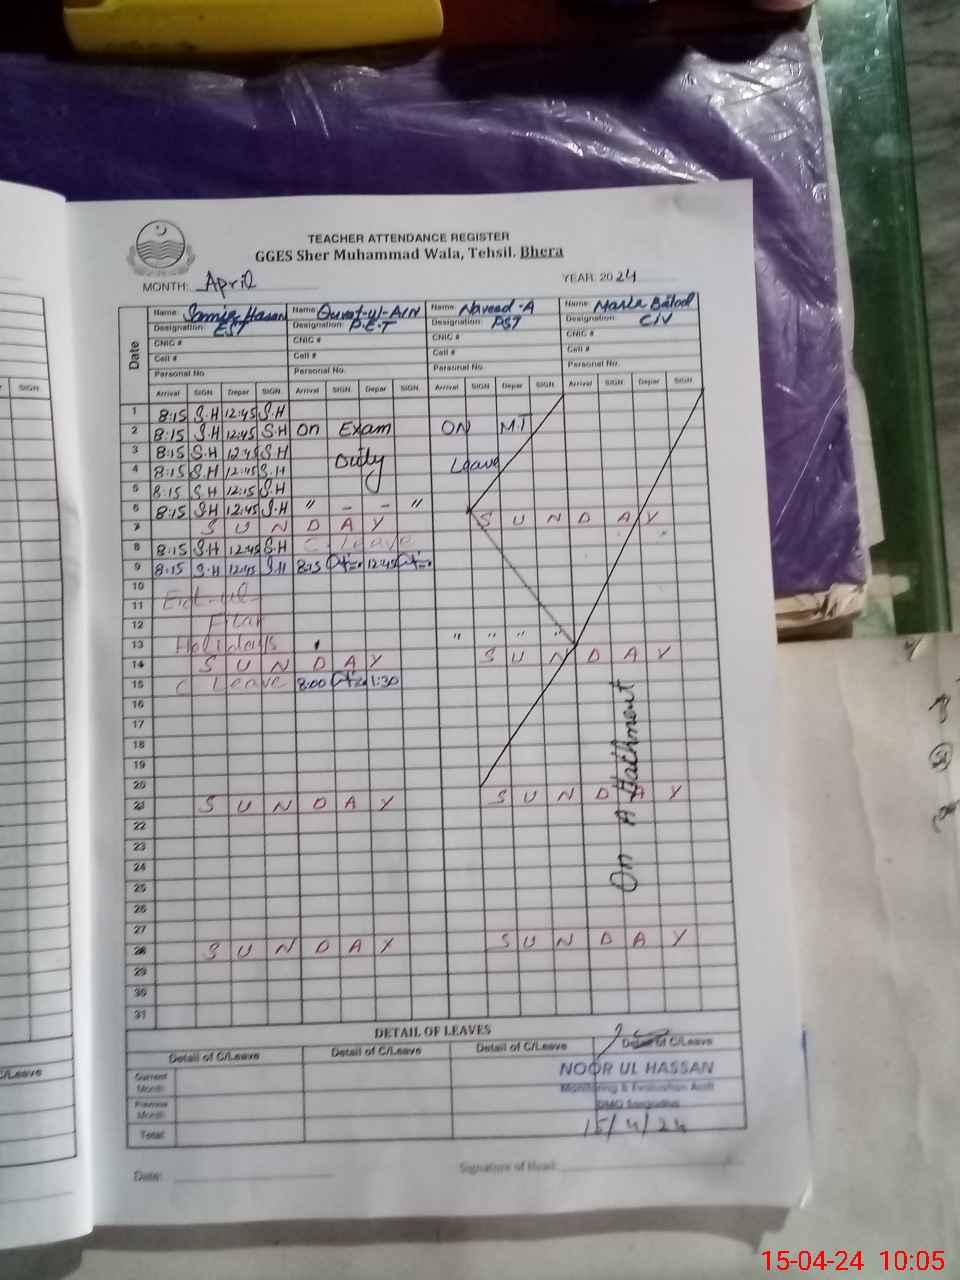 TEACHER ATTENDANCE REGISTER
GGES Sher Muhammad Wala, Tehsil. Bhera
MONTH: April YEAR: 2024
Date
Name: Samia Hasan Name: Qurat-ul-AIN Name: Naveed-A Name:
Designation: EST Designation: P.E.T Designation: PST Designation: CIV
CNIC # CNIC # CNIC # CNIC #
Cell # Cell # Cell # Cell #
Personal No. Personal No. Personal No. Personal No.
Arrival SIGN Depar SIGN Arrival SIGN Depar SIGN. Arrival SIGN Depar SIGN Arrival SIGN Depar SIGN
1 8:15 S.H 12:45 S.H
2 8:15 S.H 12:45 S.H On Exam ON MT
3 8:15 S.H 12:45 S.H Duty
4 8:15 S.H 12:45 S.H Leave
5 8:15 S.H 12:15 S.H
6 8:15 S.H 12:45 S.H " - - "
7 S U N D A Y S U N D A Y
8 8:15 S.H 12:45 S.H C. leave
9 8:15 S.H 12:45 S.H 8:15 12:45
10 Eid-ul-
11
12 Fitr
13 Holidays " " " "
14 S U N D A Y S U N D A Y
15 C Leave 8:00 1:30
16
17
18
19
20
21 S U N D A Y S U N D A Y
22
23
24
25
26
27
28 S U N D A Y S U N D A Y
29
30
31
On Attachment
DETAIL OF LEAVES
Detail of C/Leave Detail of C/Leave Detail of C/Leave Detail of C/Leave
Current Month
Previous Month
Total:
NOOR UL HASSAN
Monitoring & Evaluation Asstt
DMO Sargodha
15/4/24
Date: Signature of Head:
SIGN
C/Leave
15-04-24 10:05